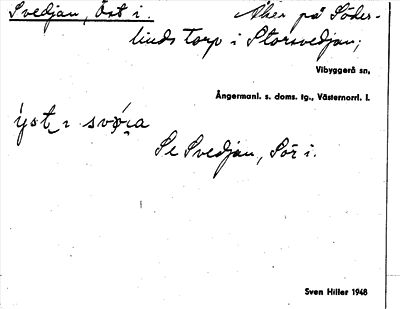 Svedjan, Öst i.
Åker på Söder-
linds torp i Storsvedjan;
Vibyggerå sn,
Ångermanl. s. doms. tg., Västernorrl. l.
Se Svedjan, Sör i.
Sven Hiller 1948